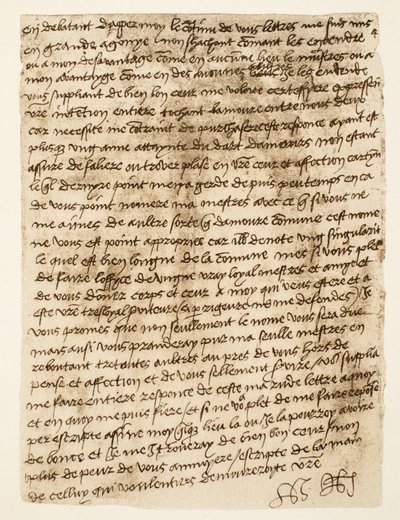 en debatant dapper moy le contenu de vous lettres me suis mis
en grande agonye non sachant comant les entendre
ou a mon desavantage come en aucune lieu le monstres ou a
mon avantage come en des aucunes aultres je les entende
vous suppliant de bien bon ceur me voloire certeffyere expressemt
vre intention entiere tochant lamoure entre nous deux
car necessite me contraint de purchasere ceste responce ayant este
plus que ung anne attaynte du dart damours non estant
assure de faliere ou trover place en vre ceur et affection cartayn
le quel dernyre point ma garde depuis peu temps en ca
de vous point nomere ma mestres avec ce que si vous ne
me aimes de aultre sorte que damoure comune cest nome
ne vous est point approprice car ill denote ung singularite
le quel est bien longne de la comune mes si vous plet
de faire loffyce de ungne vray loyal mestres et amy et
de vous doner corps et ceur a moy qui veus estere et a
este vre tresloyal serviture si par rigeure ne me defendes Je
vous promes que non seullement le nome vous sera due
mais ausi vous prenderay pur ma seulle mestres en
reboutant tretoutes aultres aupres de vous hors de
pense et affection et de vous sellement servire vous supplia
me faire entiere responce de ceste ma rude lettre a quoy
et en quoy me puis fiere et si ne vo plet de me faire reponse
per escripte assine moy quelque lieu la ou Je la pourroy avoire
de bouce et Je me y troveray de bien bon ceur non
plus de peur de vous annuyere escripte de la main
de celluy qui voulentiers demoureroyte vre